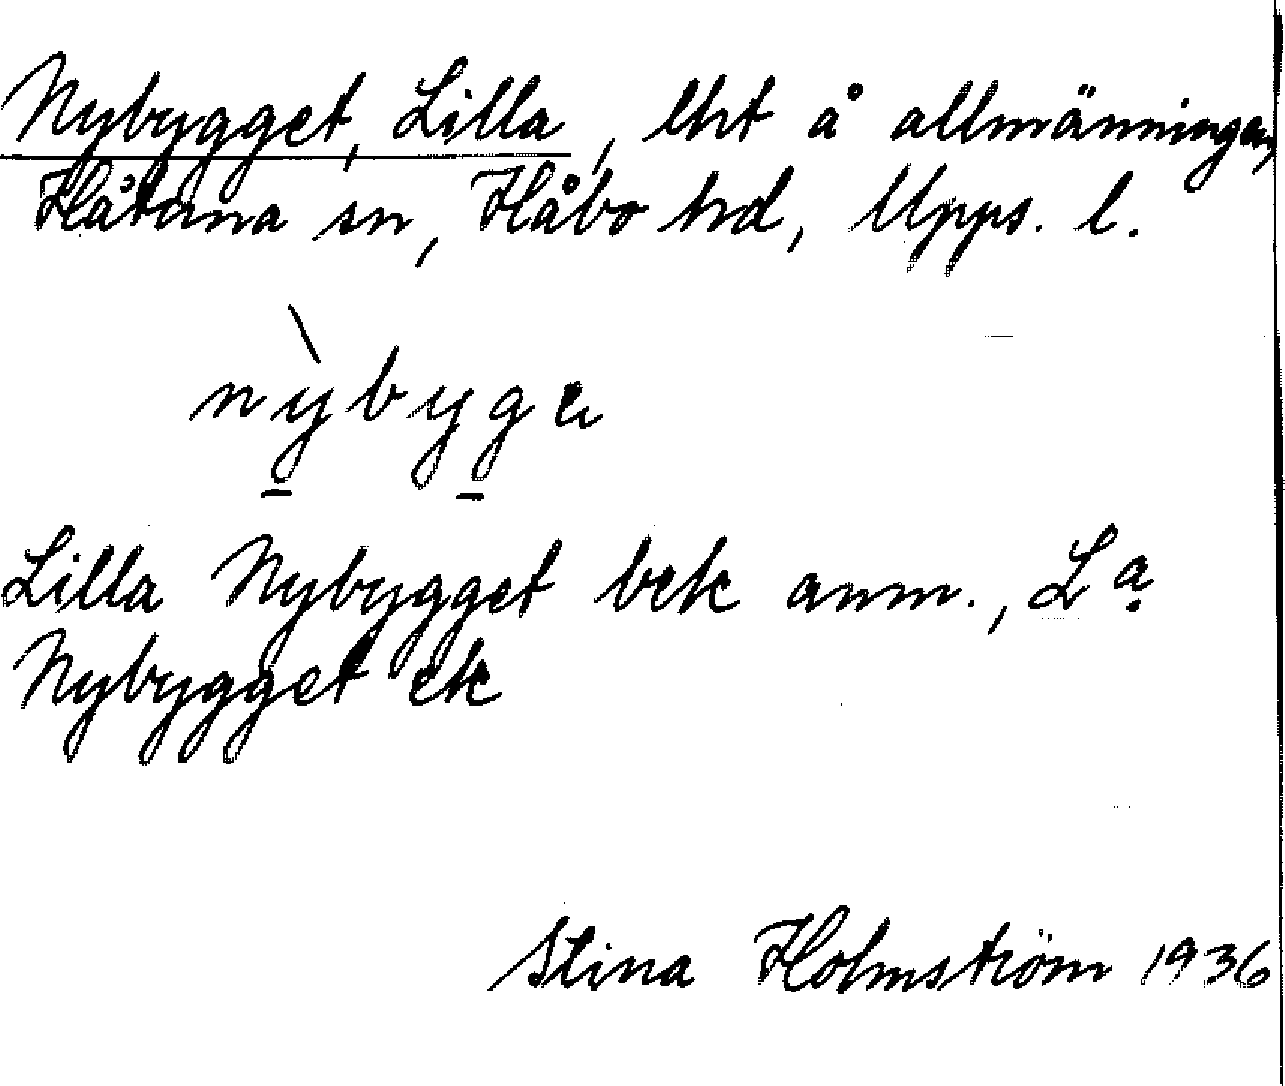 Nybygget, Lilla, lht å allmänningen,
Håtuna sn, Håbo hd, Upps. l.
nỳbyge
Lilla Nybygget bek anm., La
Nybygget ek
Stina Holmström 1936